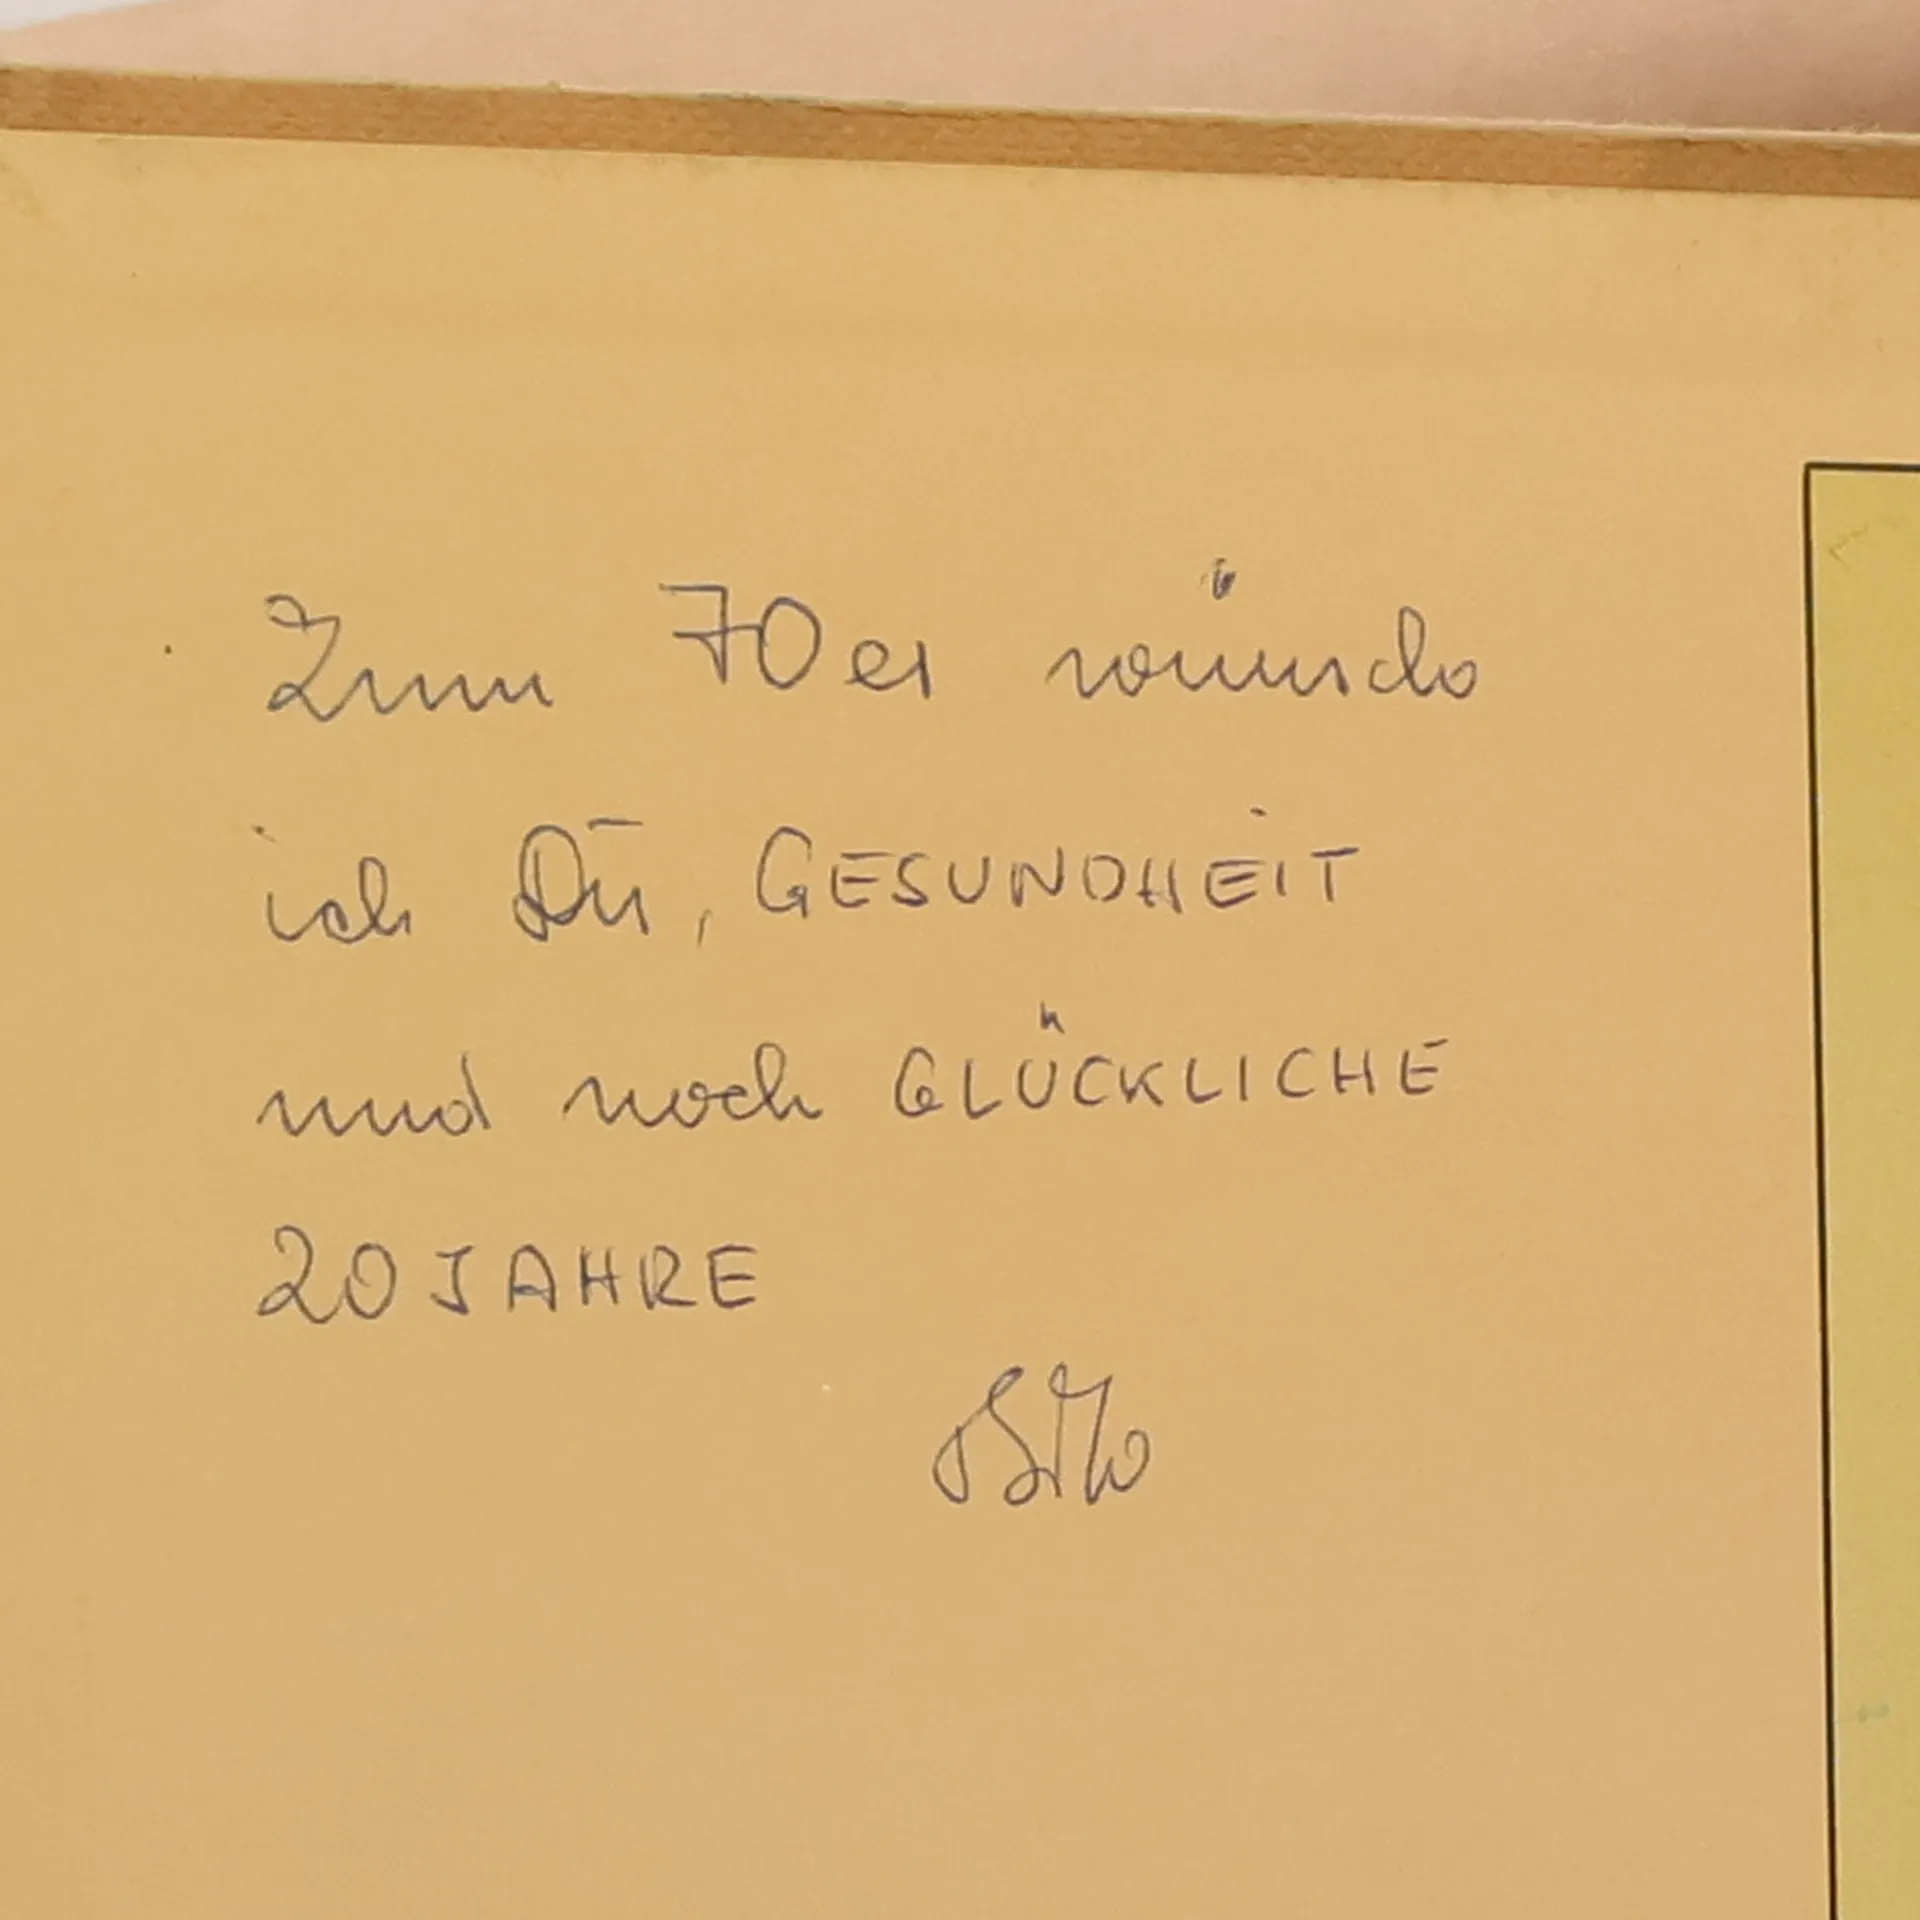 Zum 70er wünsche
ich Dir, GESUNDHEIT
und noch GLÜCKLICHE
20 JAHRE